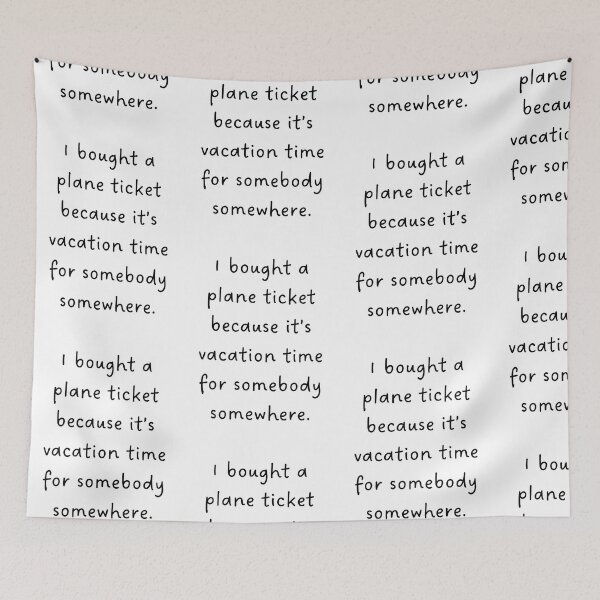 for somebody
somewhere.
I bought a
plane ticket
because it's
vacation time
for somebody
somewhere.
I bought a
plane ticket
because it's
vacation time
for somebody
somewhere.
plane ticket
because it's
vacation time
for somebody
somewhere.
I bought a
plane ticket
because it's
vacation time
for somebody
somewhere.
I bought a
plane ticket
for somebody
somewhere.
I bought a
plane ticket
because it's
vacation time
for somebody
somewhere.
I bought a
plane ticket
because it's
vacation time
for somebody
somewhere.
plane
becau
vacatio
for som
somew
I bou
plane
becau
vacatio
for som
somew
I bou
plane